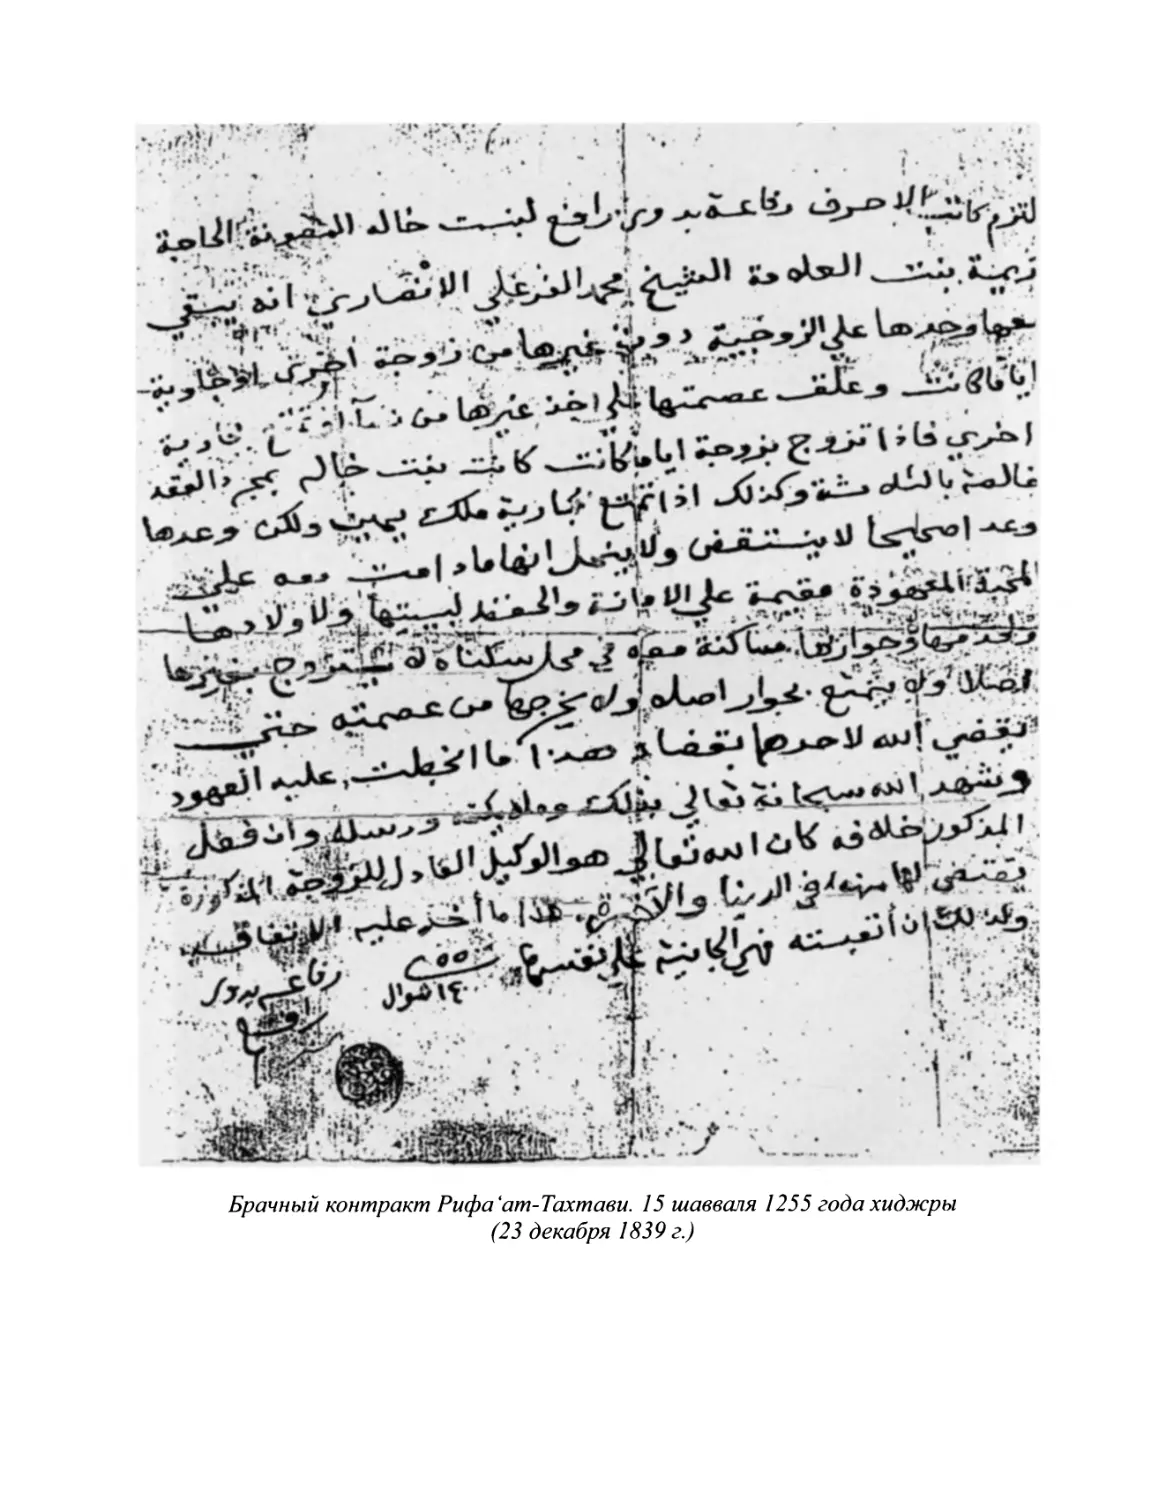 لتزم كاتب الاحرف رفاعة بدوي رافع لبنت خاله المصونة الحاجة
كريمة بنت العلامة الشيخ محمد الفرغلي الانصاري انه يبقي
معها وحدها علي الزوجية دون غيرها من زوجة اخري او جارية
ايا ما كانت وعلق عصمتها علي اخذ غيرها من نسآ او تمتع بجارية
اخري فاذا تزوج بزوجة ايا ما كانت كانت بنت خاله بمجرد العقد
خالصة بالثلاثة وكذلك اذا تمتع بجارية ملك يمين ولكن وعدها
وعدا صحيحا لا ينتقض ولا ينحل انها ما دامت معه علي
المحبة المعهودة مقيمة علي الامانة والحفظ لبيتها ولاولادها
ولخدمها وجوارها ساكنة معه في محل سكناه لا يتزوج بغيرها
اصلا ولا يتمتع بجوار اصلا ولا يخرجها من عصمته حتي
يقضي الله لاحدهما بقضاء هذا ما انجعلت عليه العهود
ونشهد الله سبحانه تعالي بذلك وملايكته ورسله وان فعل
المذكور خلافه كان الله تعالي هو الوكيل العادل للزوجة المذكورة
يقتص لها منه في الدنيا والآخرة هذا ما أخذ عليه الاتفاق
وكذلك ان أتعبته فهي الجانية علي نفسها
١٤ شوال ٥٥
رفاعه بدوي
رافع
Брачный контракт Рифа‘ат-Тахтави. 15 шавваля 1255 года хиджры
(23 декабря 1839 г.)